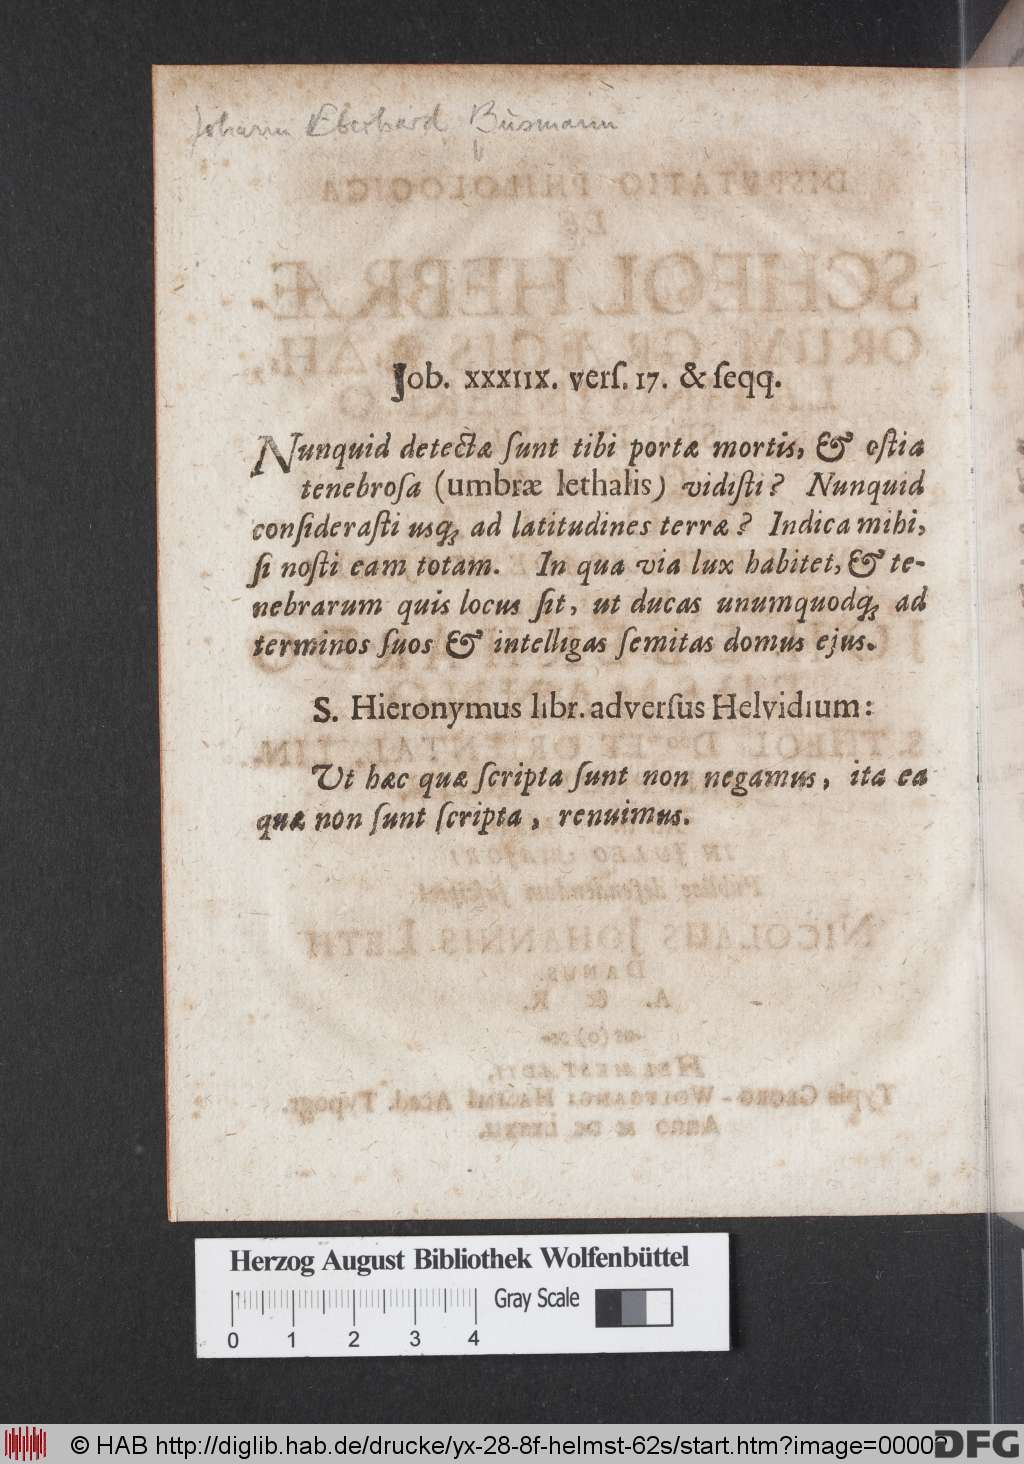 Johann Eberhard Busmann
Job. XXXIIX. verſ. 17. & ſeqq.
Nunquid detectæ ſunt tibi portæ mortis, & oſtia
tenebroſa (umbræ lethalis) vidiſti? Nunquid
conſideraſti usq; ad latitudines terræ? Indica mihi,
ſi noſti eam totam. In qua via lux habitet, & te-
nebrarum quis locus ſit, ut ducas unumquodq; ad
terminos ſuos & intelligas ſemitas domus ejus.
S. Hieronymus libr. adverſus Helvidium:
Ut hæc quæ ſcripta ſunt non negamus, ita ea
quæ non ſunt ſcripta, renuimus.
Herzog August Bibliothek Wolfenbüttel
Gray Scale
0 1 2 3 4
© HAB http://diglib.hab.de/drucke/yx-28-8f-helmst-62s/start.htm?image=00002
DFG